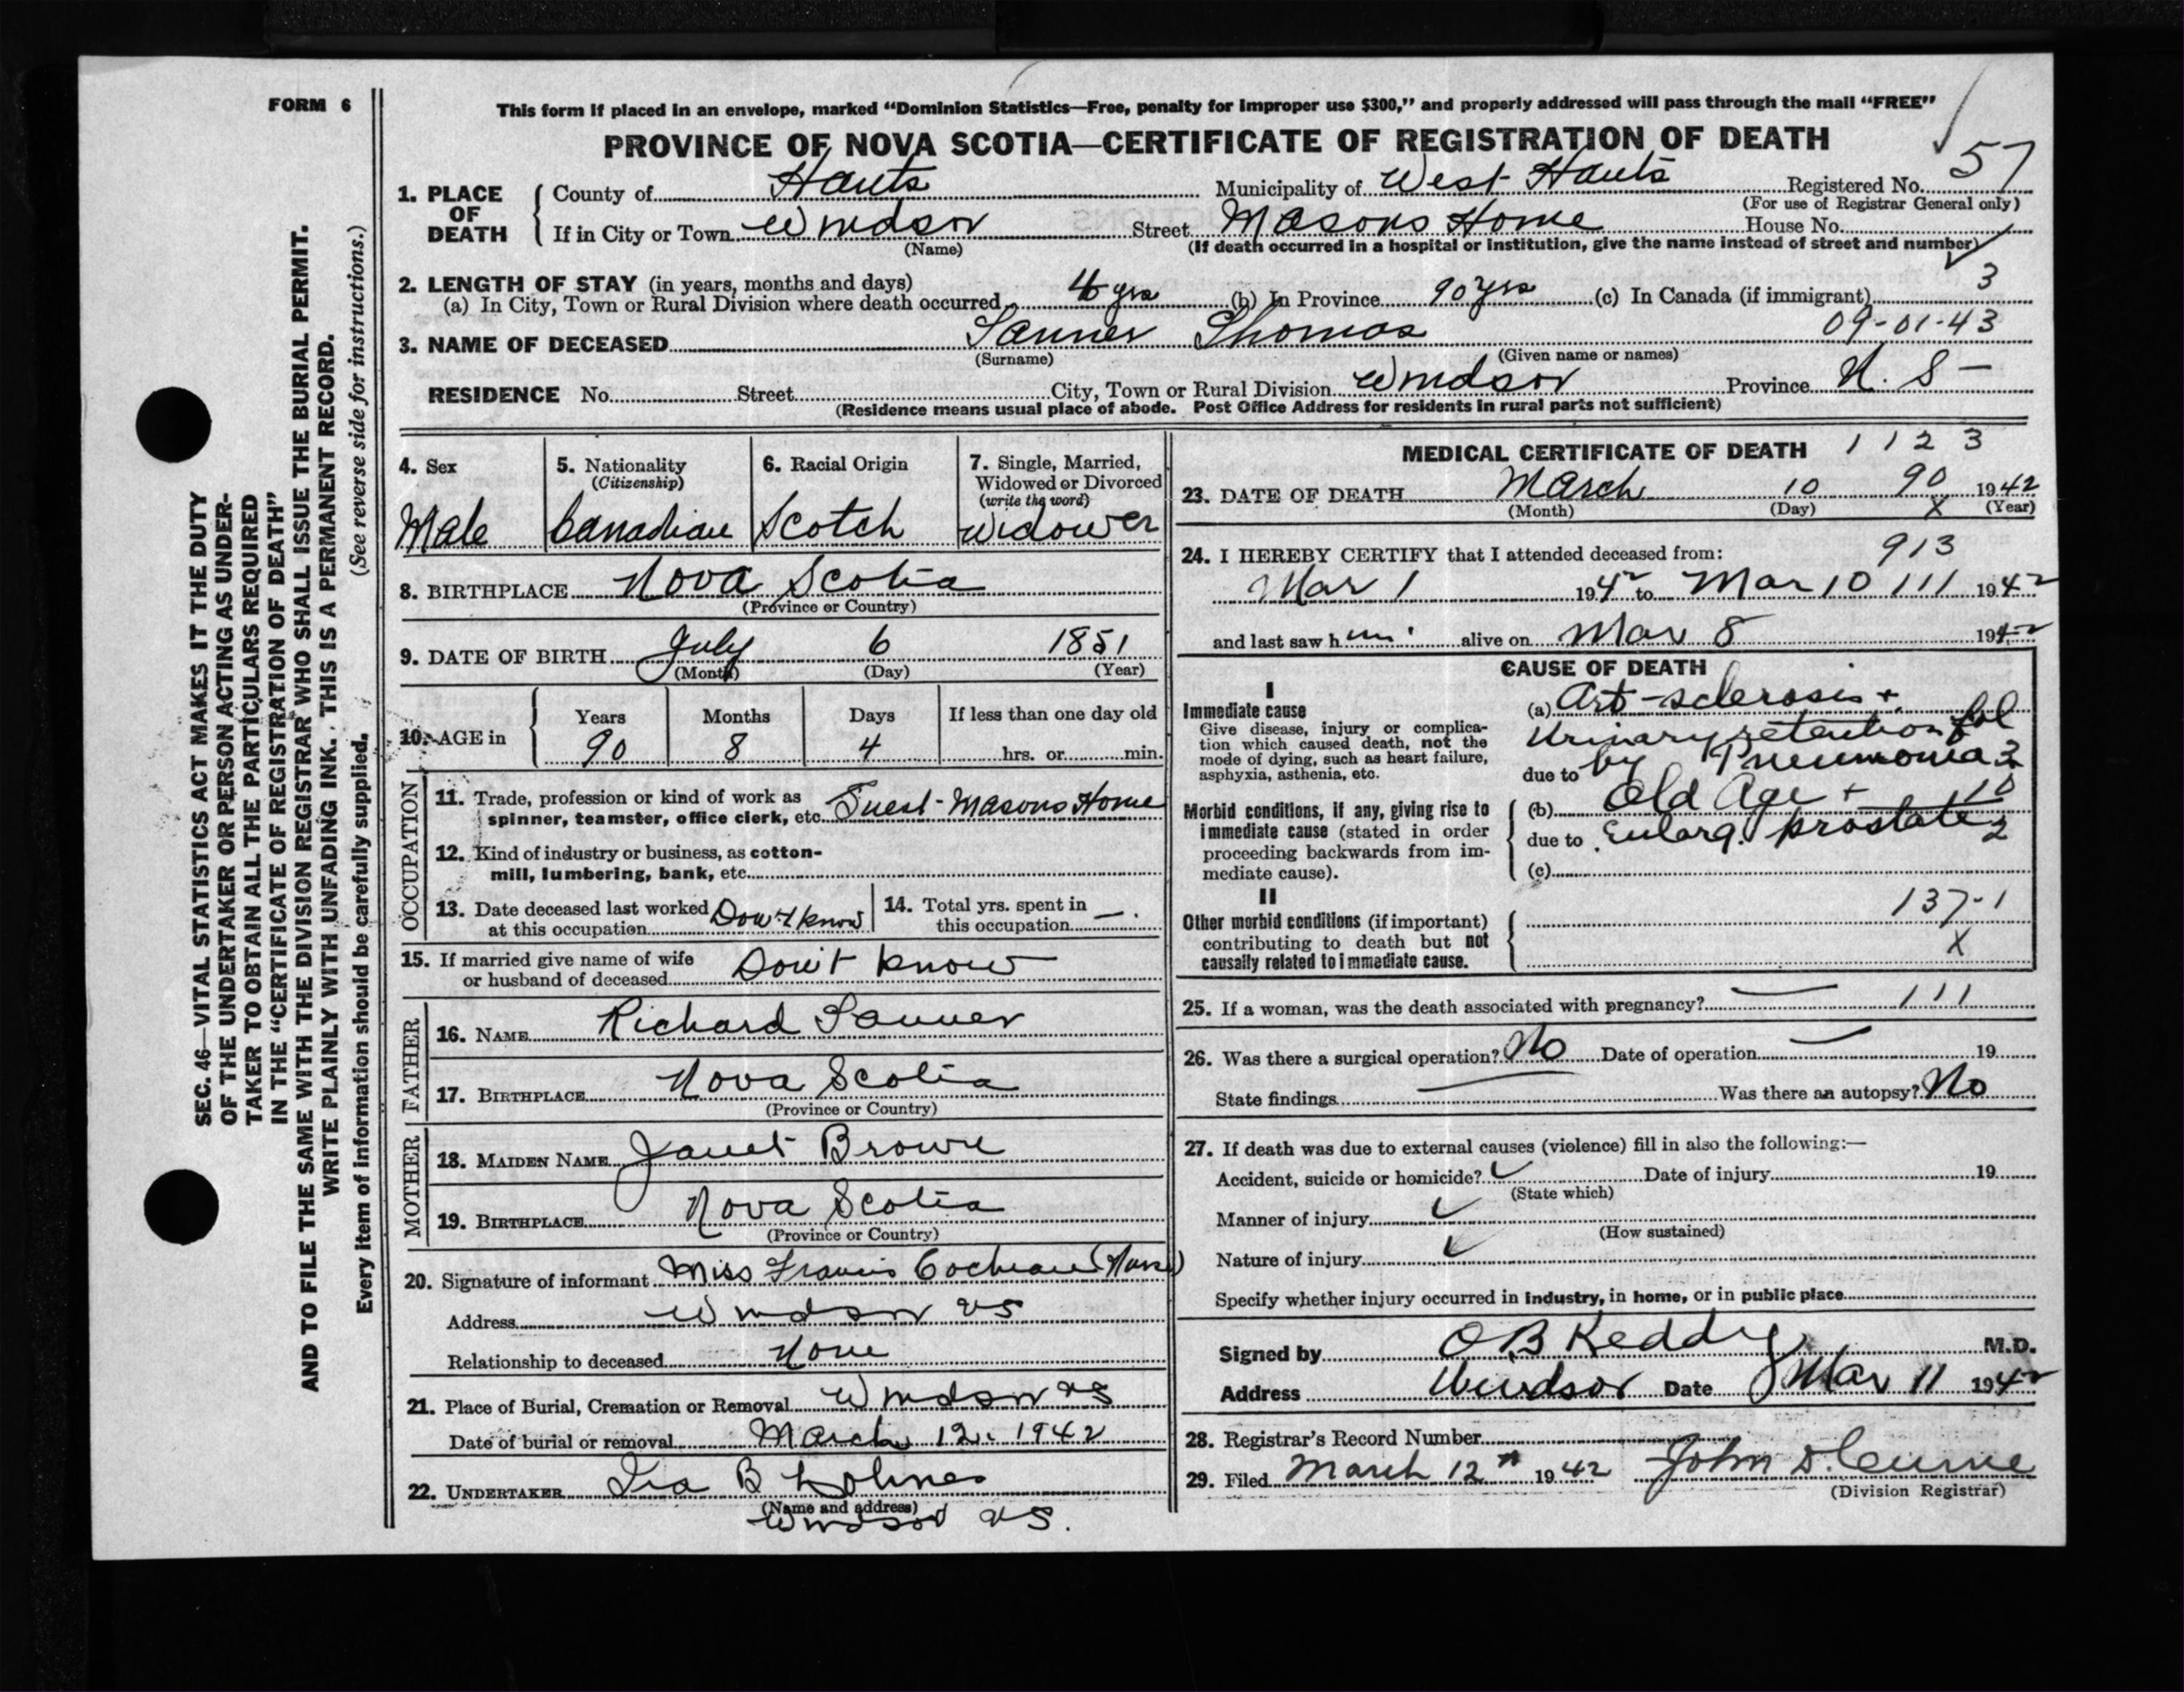 FORM 6
This form if placed in an envelope, marked “Dominion Statistics—Free, penalty for improper use $300,” and properly addressed will pass through the mail “FREE”
PROVINCE OF NOVA SCOTIA—CERTIFICATE OF REGISTRATION OF DEATH
57
1. PLACE OF DEATH
County of Hants Municipality of West Hants Registered No.
(For use of Registrar General only)
If in City or Town Windsor Street Masons Home House No.
(Name) (If death occurred in a hospital or institution, give the name instead of street and number)
2. LENGTH OF STAY (in years, months and days) 3
(a) In City, Town or Rural Division where death occurred 4 yrs (b) In Province 90 yrs (c) In Canada (if immigrant)
09-01-43
3. NAME OF DECEASED Sanner Thomas
(Surname) (Given name or names)
RESIDENCE No. Street City, Town or Rural Division Windsor Province N. S-
(Residence means usual place of abode. Post Office Address for residents in rural parts not sufficient)
4. Sex
Male
5. Nationality
(Citizenship)
Canadian
6. Racial Origin
Scotch
7. Single, Married,
Widowed or Divorced
(write the word)
Widower
8. BIRTHPLACE Nova Scotia
(Province or Country)
9. DATE OF BIRTH July 6 1851
(Month) (Day) (Year)
10. AGE in
Years Months Days If less than one day old
90 8 4 hrs. or min.
OCCUPATION
11. Trade, profession or kind of work as
spinner, teamster, office clerk, etc. Guest-Masons Home
12. Kind of industry or business, as cotton-
mill, lumbering, bank, etc.
13. Date deceased last worked
at this occupation Don't know
14. Total yrs. spent in
this occupation —.
15. If married give name of wife
or husband of deceased Don't know
FATHER
16. NAME Richard Sanner
17. BIRTHPLACE Nova Scotia
(Province or Country)
MOTHER
18. MAIDEN NAME Janet Brown
19. BIRTHPLACE Nova Scotia
(Province or Country)
20. Signature of informant Miss Francis Cochrane (Nurse)
Address Windsor NS
Relationship to deceased None
21. Place of Burial, Cremation or Removal Windsor NS
Date of burial or removal March 12. 1942
22. UNDERTAKER Ira B Lohnes
(Name and address)
Windsor NS.
MEDICAL CERTIFICATE OF DEATH 1 1 2 3
90
23. DATE OF DEATH March 10 1942
(Month) (Day) X (Year)
24. I HEREBY CERTIFY that I attended deceased from: 913
Mar 1 1942 to Mar 10 111 1942
and last saw him alive on Mar 8 1942
CAUSE OF DEATH
I
Immediate cause
Give disease, injury or complica-
tion which caused death, not the
mode of dying, such as heart failure,
asphyxia, asthenia, etc.
(a) Art-sclerosis +
Urinary retention fol
due to by Pneumonia 3
Morbid conditions, if any, giving rise to
immediate cause (stated in order
proceeding backwards from im-
mediate cause).
(b) Old Age + 10
due to Enlarg. prostate 2
(c)
II
Other morbid conditions (if important)
contributing to death but not
causally related to immediate cause.
137-1
X
25. If a woman, was the death associated with pregnancy? — 111
26. Was there a surgical operation? No Date of operation — 19
State findings — Was there an autopsy? No
27. If death was due to external causes (violence) fill in also the following:—
Accident, suicide or homicide? Date of injury 19
(State which)
Manner of injury
(How sustained)
Nature of injury
Specify whether injury occurred in industry, in home, or in public place
Signed by O B Keddy M.D.
Address Windsor Date Mar 11 1942
28. Registrar's Record Number
29. Filed March 12th 1942 John D.
(Division Registrar)
SEC. 46—VITAL STATISTICS ACT MAKES IT THE DUTY
OF THE UNDERTAKER OR PERSON ACTING AS UNDER-
TAKER TO OBTAIN ALL THE PARTICULARS REQUIRED
IN THE “CERTIFICATE OF REGISTRATION OF DEATH”
AND TO FILE THE SAME WITH THE DIVISION REGISTRAR WHO SHALL ISSUE THE BURIAL PERMIT.
WRITE PLAINLY WITH UNFADING INK. THIS IS A PERMANENT RECORD.
Every item of information should be carefully supplied. (See reverse side for instructions.)